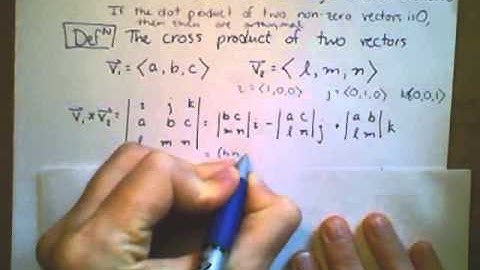 If the dot product of two non-zero vectors is 0,
then they are orthogonal
Defᴺ The cross product of two vectors
V₁ = ⟨a, b, c⟩ V₂ = ⟨l, m, n⟩
i = ⟨1,0,0⟩ j = ⟨0,1,0⟩ k⟨0,0,1⟩
V₁ × V₂ = | i j k | = | b c | i − | a c | j + | a b | k
| a b c | | m n | | l n | | l m |
| l m n |
= (bn